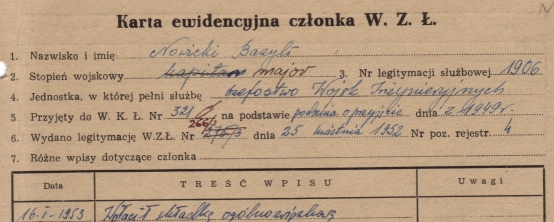 Karta ewidencyjna członka W. Z. Ł.
1. Nazwisko i imię Nowicki Bazyli
2. Stopień wojskowy kapitan major 3. Nr legitymacji służbowej 1906
4. Jednostka, w której pełni służbę Szefostwo Wojsk Inżynieryjnych
5. Przyjęty do W. K. Ł. Nr 321/ na podstawie podania o przyjęcie dnia z 1949 r.
266/3
6. Wydano legitymację W.Z.Ł. Nr dnia 25 kwietnia 1952 Nr poz. rejestr. 4
7. Różne wpisy dotyczące członka
Data TREŚĆ WPISU Uwagi
16.I-1953 Wpłacił składkę ogólnozwiązkową